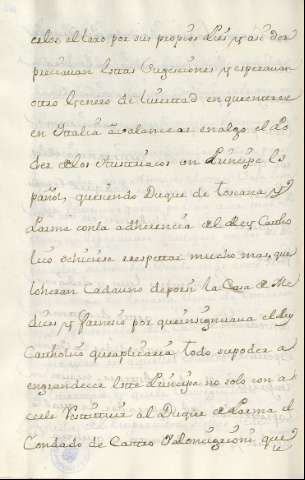 celos el lazo por sus propios Pies, y assi des
preciauan estas sugestiones y esperauan
otro Genero de libertad en que entrase
en Italia a balancear en algo el Po
der de los Austriacos un Principe Es
pañol, queriendo Duque de Toscana y
Parma con la adherencia del Rey Catho
lico se hiciese respetar mucho mas, que
lo heran cada uno de por si la Casa de Me
dicis, y farnesio por que
Catholico que aplicaria todo su poder a
engrandecer este Principe no solo con a
cerle restituir al Duque de Parma el
Condado de Castro y Ronciglioni que